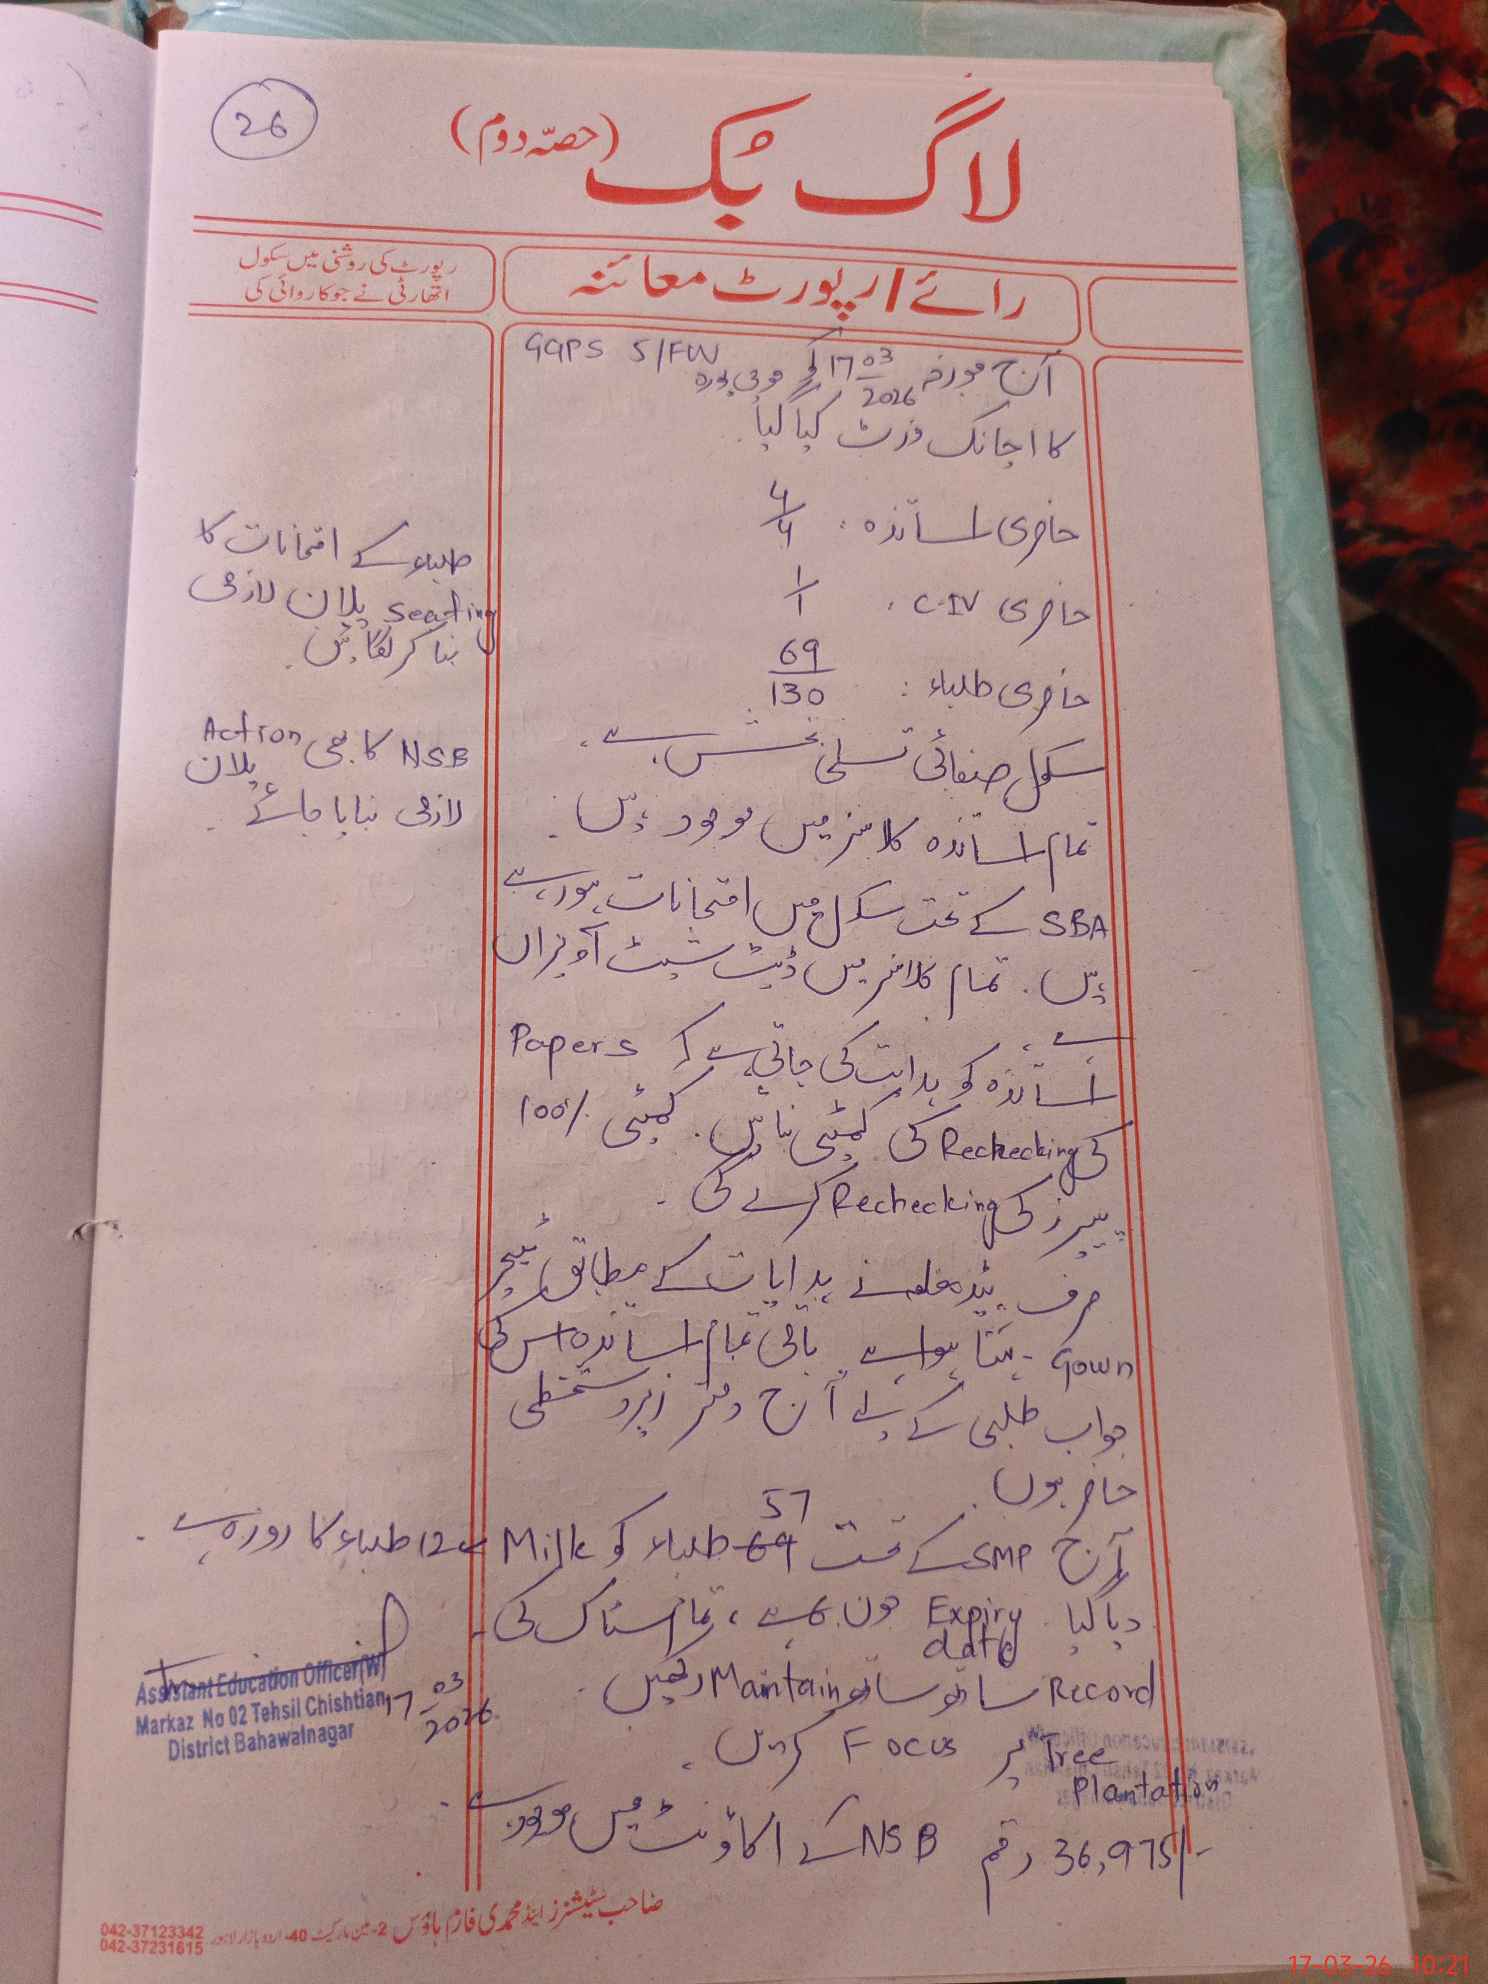 26
لاگ بُک (حصّہ دوم)
رائے / رپورٹ معائنہ
رپورٹ کی روشنی میں سکول
اتھارٹی نے جو کاروائی کی
آج مورخہ 17 03/2026 کو موتی پورہ GGPS 5/FW
کا اچانک وزٹ کیا گیا۔
حاضری اساتذہ: 4/4
حاضری C-IV: 1/1
حاضری طلباء: 69/130
سکول صفائی تسلی بخش ہے۔
تمام اساتذہ کلاسز میں موجود ہیں۔
SBA کے تحت سکول میں امتحانات ہو رہے
ہیں۔ تمام کلاسز میں ڈیٹ شیٹ آویزاں
ہے۔
اساتذہ کو ہدایت کی جاتی ہے کہ Papers
کی Rechecking کی کمیٹی بنائیں۔ کمیٹی 100%
پیپرز کی Rechecking کرے گی۔
صرف ہیڈ معلمہ نے ہدایات کے مطابق ٹیچر
Gown پہنا ہوا ہے۔ باقی تمام اساتذہ اس کی
جواب طلبی کے لیے آج دفتر زیر دستخطی
حاضر ہوں۔
57
آج SMP کے تحت 69 طلباء کو Milk 12 طلباء کا روزہ ہے۔
دیا گیا۔ Expiry date جون ہے، تمام سٹاک کی
Record ساتھ ساتھ Maintain رکھیں۔
Tree Plantation پر Focus کریں۔
36,975/- رقم NSB کے اکاؤنٹ میں موجود ہے۔
طلباء کے امتحانات کا
Seating پلان لازمی
بنا کر لگائیں۔
NSB کا بھی Action پلان
لازمی بنایا جائے۔
Assistant Education Officer(W)
Markaz No 02 Tehsil Chishtian
District Bahawalnagar
17 03/2026
صاحب سٹیشنرز اینڈ محمدی فارم ہاؤس 2-مین مارکیٹ 40-اردو بازار لاہور
042-37123342
042-37231615
17-03-26 10:21